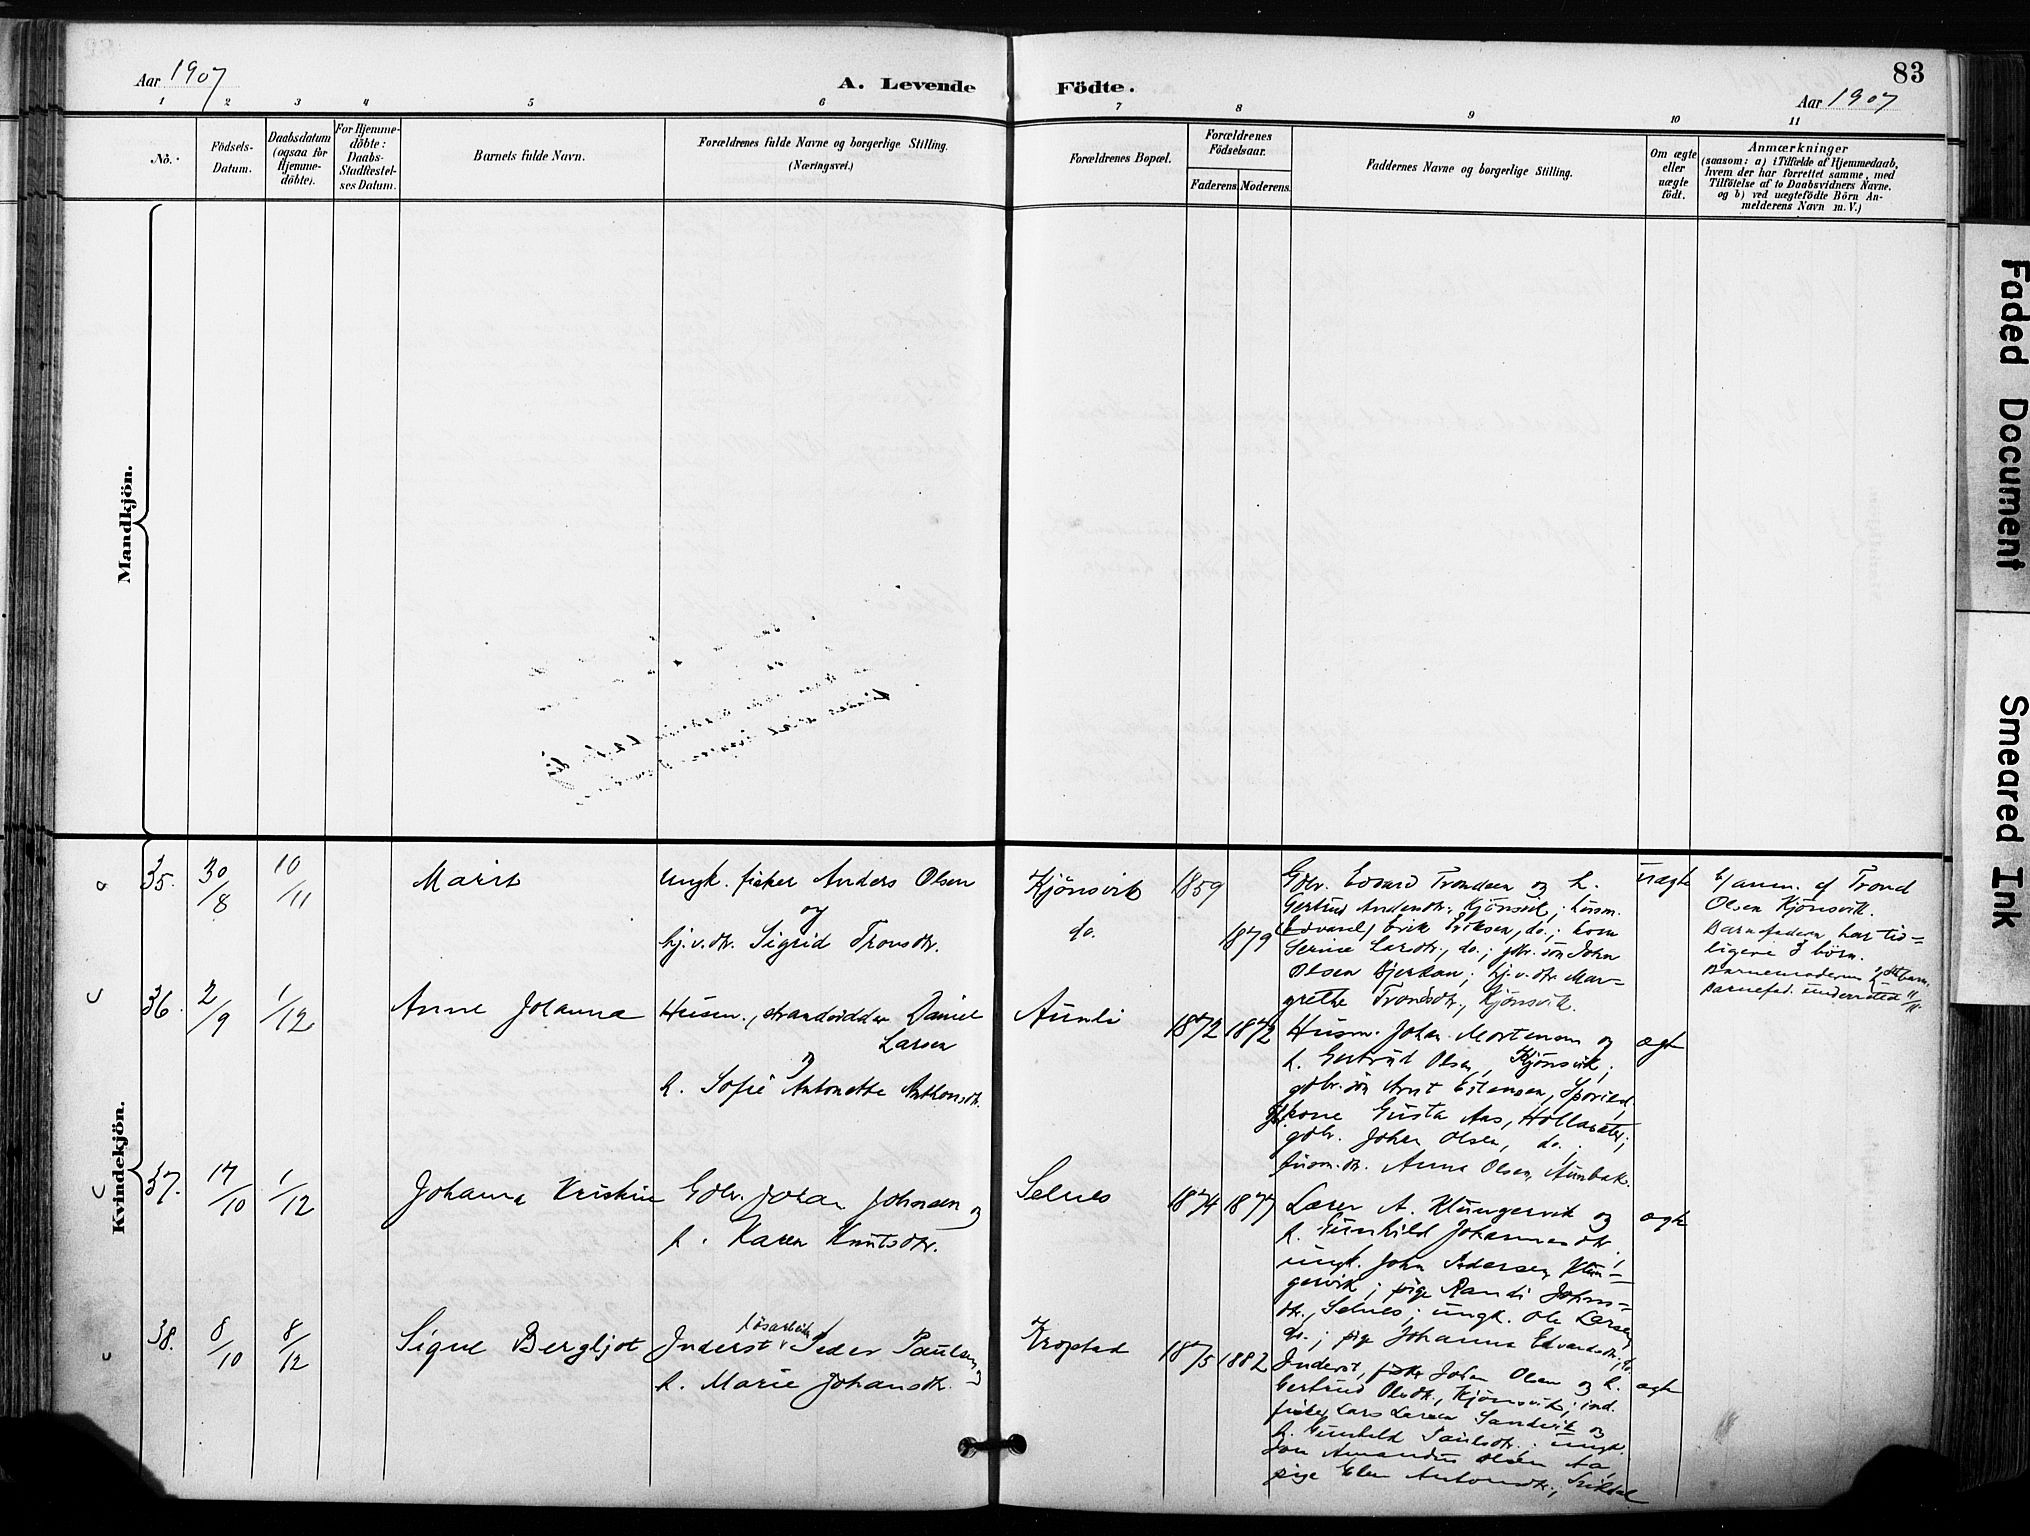 83
Aar 1907
A. Levende Födte.
Aar 1907
1 2 3 4 5 6 7 8 9 10 11
No.
Födsels-
Datum.
Daabsdatum
(ogsaa for
Hjemme-
döbte).
For Hjemme-
döbte:
Daabs-
Stadfæstel-
ses Datum.
Barnets fulde Navn.
Forældrenes fulde Navne og borgerlige Stilling.
(Næringsvei.)
Forældrenes Bopæl.
Forældrenes
Födselsaar.
Faderens. Moderens.
Faddernes Navne og borgerlige Stilling.
Om ægte
eller
uægte
födt.
Anmærkninger
(saasom: a) i Tilfælde af Hjemmedaab,
hvem der har forrettet samme, med
Tilföielse af to Daabsvidners Navne.
og b) ved uægtefödte Börn An-
melderens Navn m. V.)
Mandkjön.
Kvindekjön.
35. 30/8 10/11 Marit
Ungk. fisker Anders Olsen
og
hj.v.dr. Sigrid Tronsdr.
Kjönsvik
do.
1859
1879
Gdbr. Edvard Trondsen og h.
Gertrud Andersdr., Kjönsvik; husm.
Erik Eriksen, do.; kone
Serine Larsdr., do.; gdbr. sön John
Olsen Bjerkan; hj.v.dr. Mar-
grethe Trondsdr., Kjönsvik.
uægte
anm. af Trond
Olsen Kjönsvik.
Barnefaderen har tid-
ligere 3 börn.
Barnemoderen 2det barn.
Barnefad. underrettet 11/11
36. 2/9 1/12 Anne Johanna
Husm., strandsidder Daniel
Larsen
og
h. Sofie Antonette Anthonsdr.
Aunli
1872 1872
Husm. Johan Mortensen og
h. Gertrud Olsen, Kjönsvik;
gdbr. sön Arnt Estensen,
kone Gusta Aas, Hollaneter;
gdbr. Johan Olsen, do.;
husm. dr. Anna Olsen, Aunbak.
ægte
37. 17/10 1/12 Johanna Kristine
Gdbr. Johan Johnsen og
h. Karen Knutsdr.
Selnes
1874 1877
Lærer A. Klungervik og
h. Gunhild Johannesdr.;
ungk. John Pedersen Klun-
gervik; pige Randi Johns-
dr., Selnes; ungk. Ole Larsen,
do.; pige Johanna Edvardsdr., do.
ægte
38. 8/10 8/12 Signe Bergljot
Inderst, lösarbeider Peder Paulsen og
h. Marie Johansdr.
Kropstad
1875 1882
Inderst, fisker Johan Olsen og h.
Gertrud Olsdr., Kjönsvik; ind.
fisker Lars Larsen Sandvik og
h. Gunhild Paulsdr.; ungk.
Jon Amandus Olsen Aa,
pige Elen Antonsdr.,
ægte
Faded Document
Smeared Ink